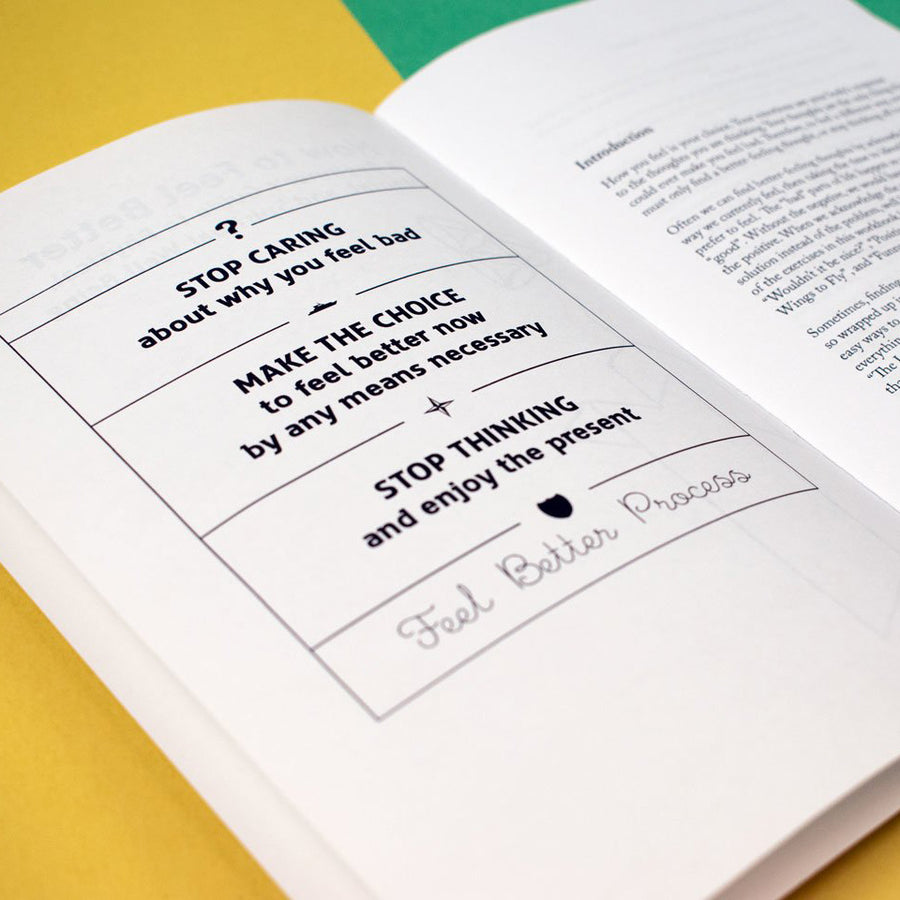 ?
STOP CARING
about why you feel bad
MAKE THE CHOICE
to feel better now
by any means necessary
STOP THINKING
and enjoy the present
Feel Better Process
Introduction
How you feel is your choice. Your emotions are
to the thoughts you are thinking. Your thoughts are the only
could ever make you feel bad.
must only find a better feeling thought, or stop thinking
Often we can find better-feeling thoughts by
way we currently feel, then taking the time to
prefer to feel. The "bad" parts of life
"good". Without the negative, we would
the positive. When we acknowledge the
solution instead of the problem,
of the exercises in this workbook
"Wouldn't it be nice?" "Positi
Wings to Fly", and "Funni
Sometimes, finding
so wrapped up i
easy ways to
everythin
"The L
tha